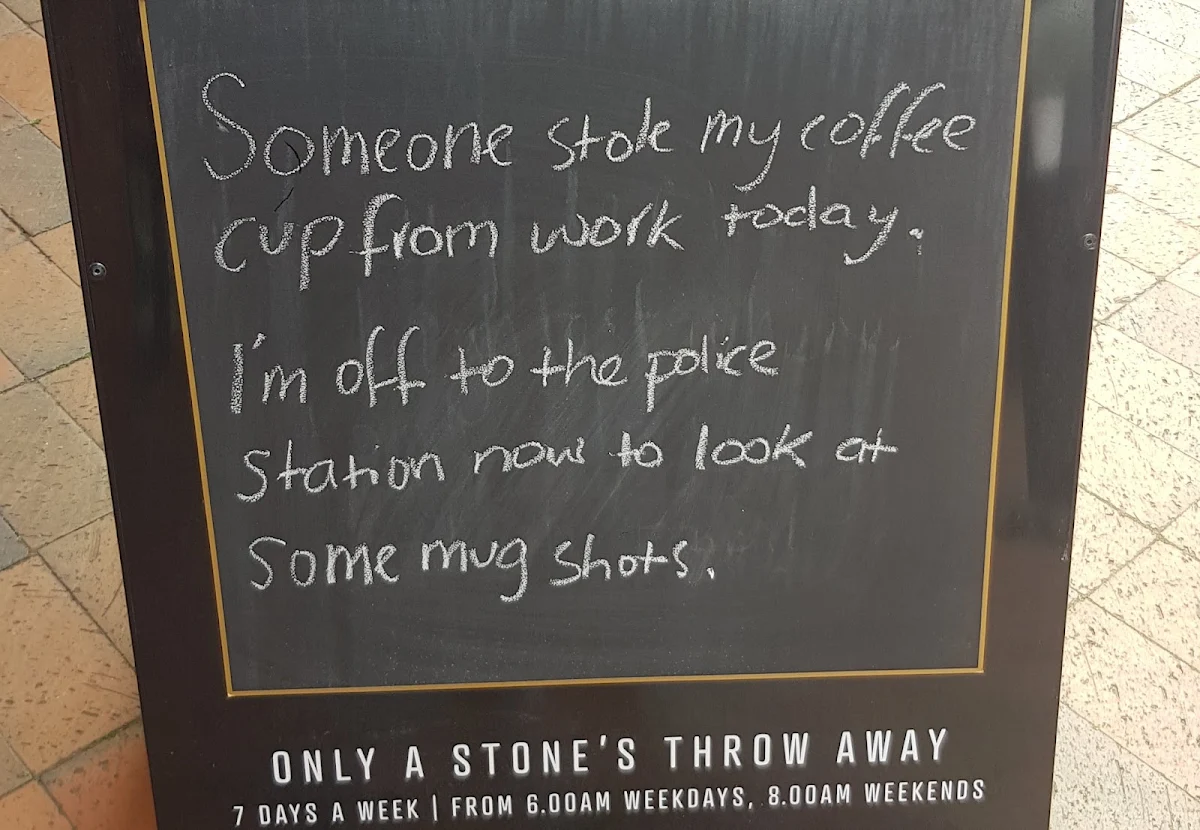 Someone stole my coffee
cup from work today.
I'm off to the police
station now to look at
some mug shots.
ONLY A STONE'S THROW AWAY
7 DAYS A WEEK | FROM 6.00AM WEEKDAYS, 8.00AM WEEKENDS